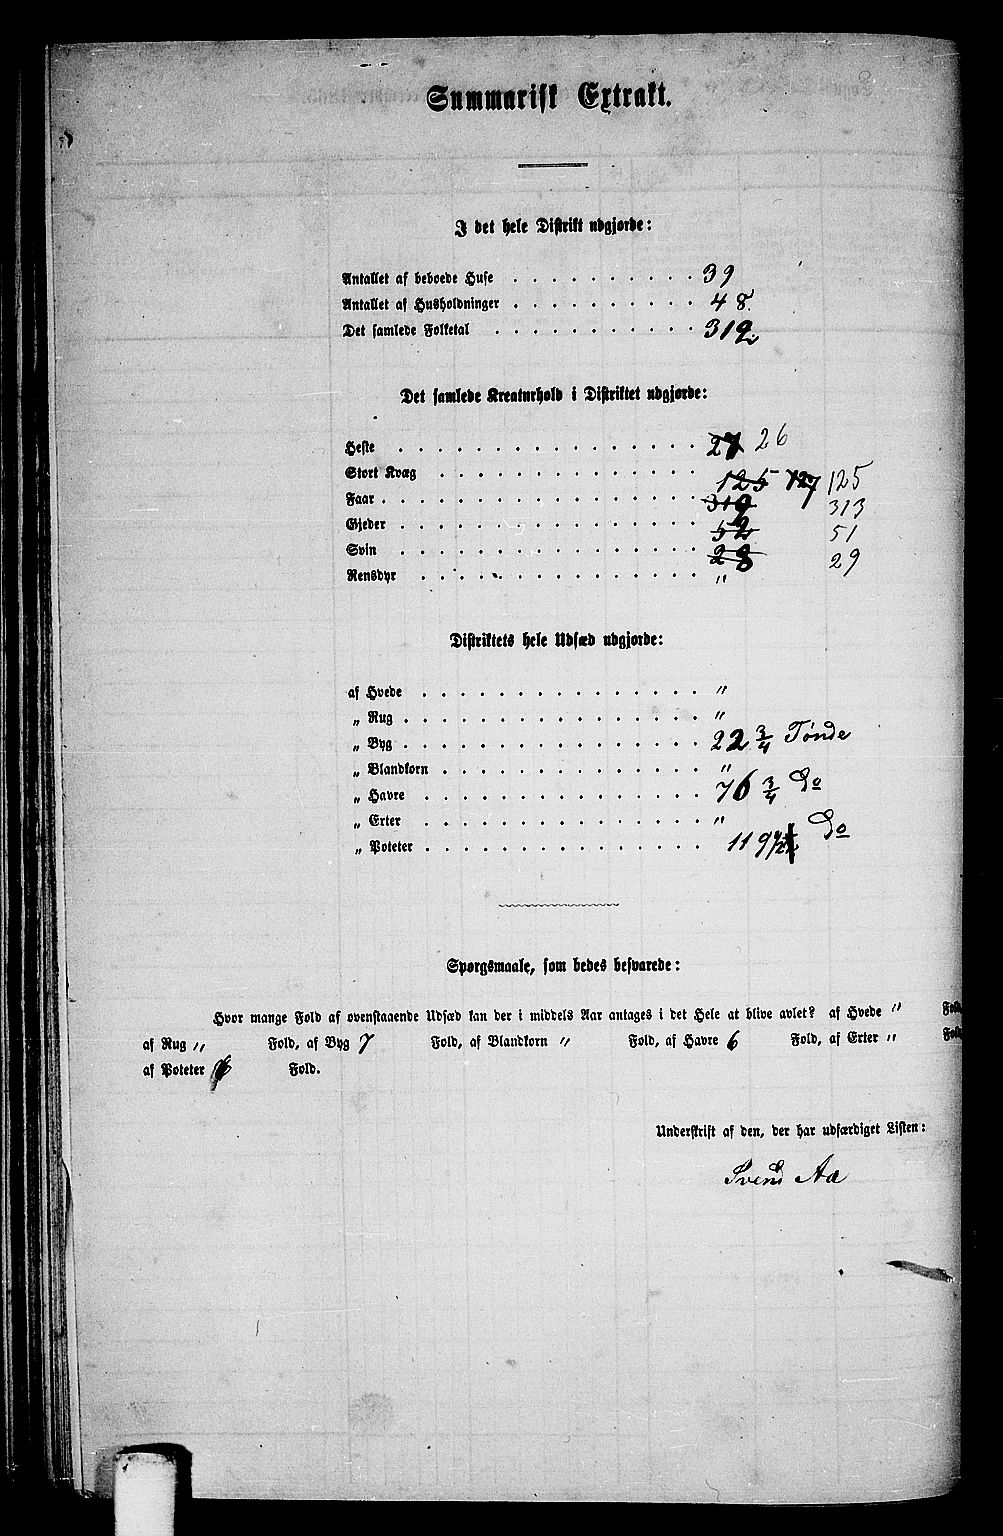 Summarisk Extrakt.
I det hele Distrikt udgjorde:
Antallet af beboede Huse . . . . . . . . . . 39
Antallet af Husholdninger . . . . . . . . . . 48.
Det samlede Folketal . . . . . . . . . . . 312
Det samlede Kreaturhold i Distriktet udgjorde:
Heste . . . . . . . . . . . . . . . 27 26
Stort Kvæg . . . . . . . . . . . . . 125 127 125
Faar . . . . . . . . . . . . . . . 319 313
Gjeder . . . . . . . . . . . . . . 52 51
Svin . . . . . . . . . . . . . . . 28 29
Rensdyr . . . . . . . . . . . . . . "
Distriktets hele Udsæd udgjorde:
af Hvede . . . . . . . . . . . . . "
„ Rug . . . . . . . . . . . . . . "
„ Byg . . . . . . . . . . . . . . 22 3/4 Tønde
„ Blandkorn . . . . . . . . . . . . "
„ Havre . . . . . . . . . . . . . 76 3/4 Do
„ Erter . . . . . . . . . . . . . "
„ Poteter . . . . . . . . . . . . . 119 Do
Spørgsmaale, som bedes besvarede:
Hvor mange Fold af ovenstaaende Udsæd kan der i middels Aar antages i det Hele at blive avlet? af Hvede " Fold,
af Rug " Fold, af Byg 7 Fold, af Blandkorn " Fold, af Havre 6 Fold, af Erter " Fold,
af Poteter Fold.
Underskrift af den, der har udfærdiget Listen:
Svend Aa